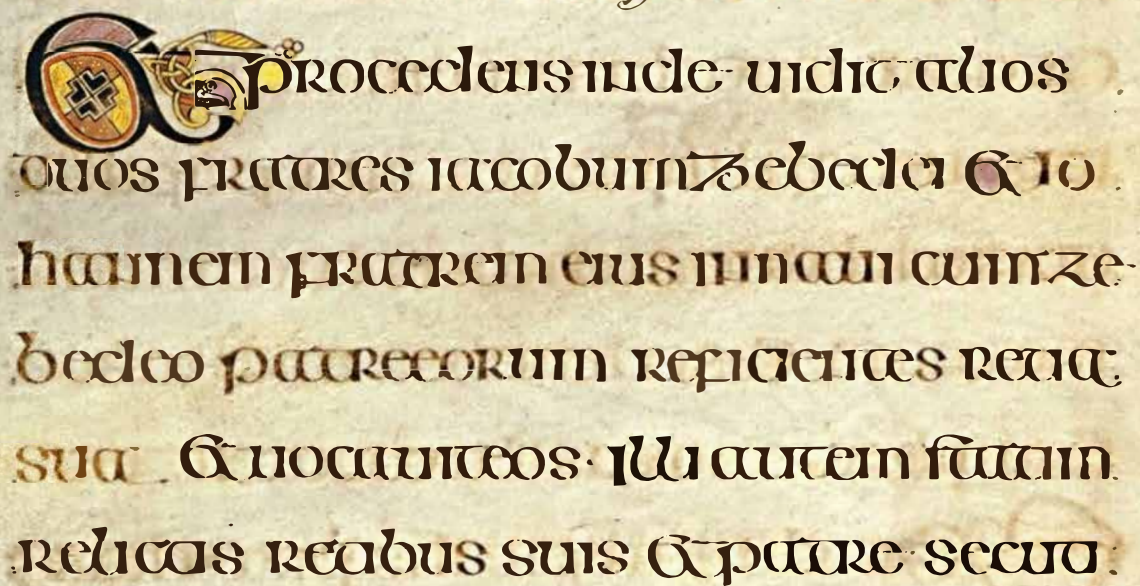 Et procedens inde uidit alios
duos fratres iacobum zebedei et io
hannem fratrem eius in naui cum ze
bedeo patre eorum reficientes retia
sua Et uocauit eos · illi autem statim
relictis retibus suis et patre secuti